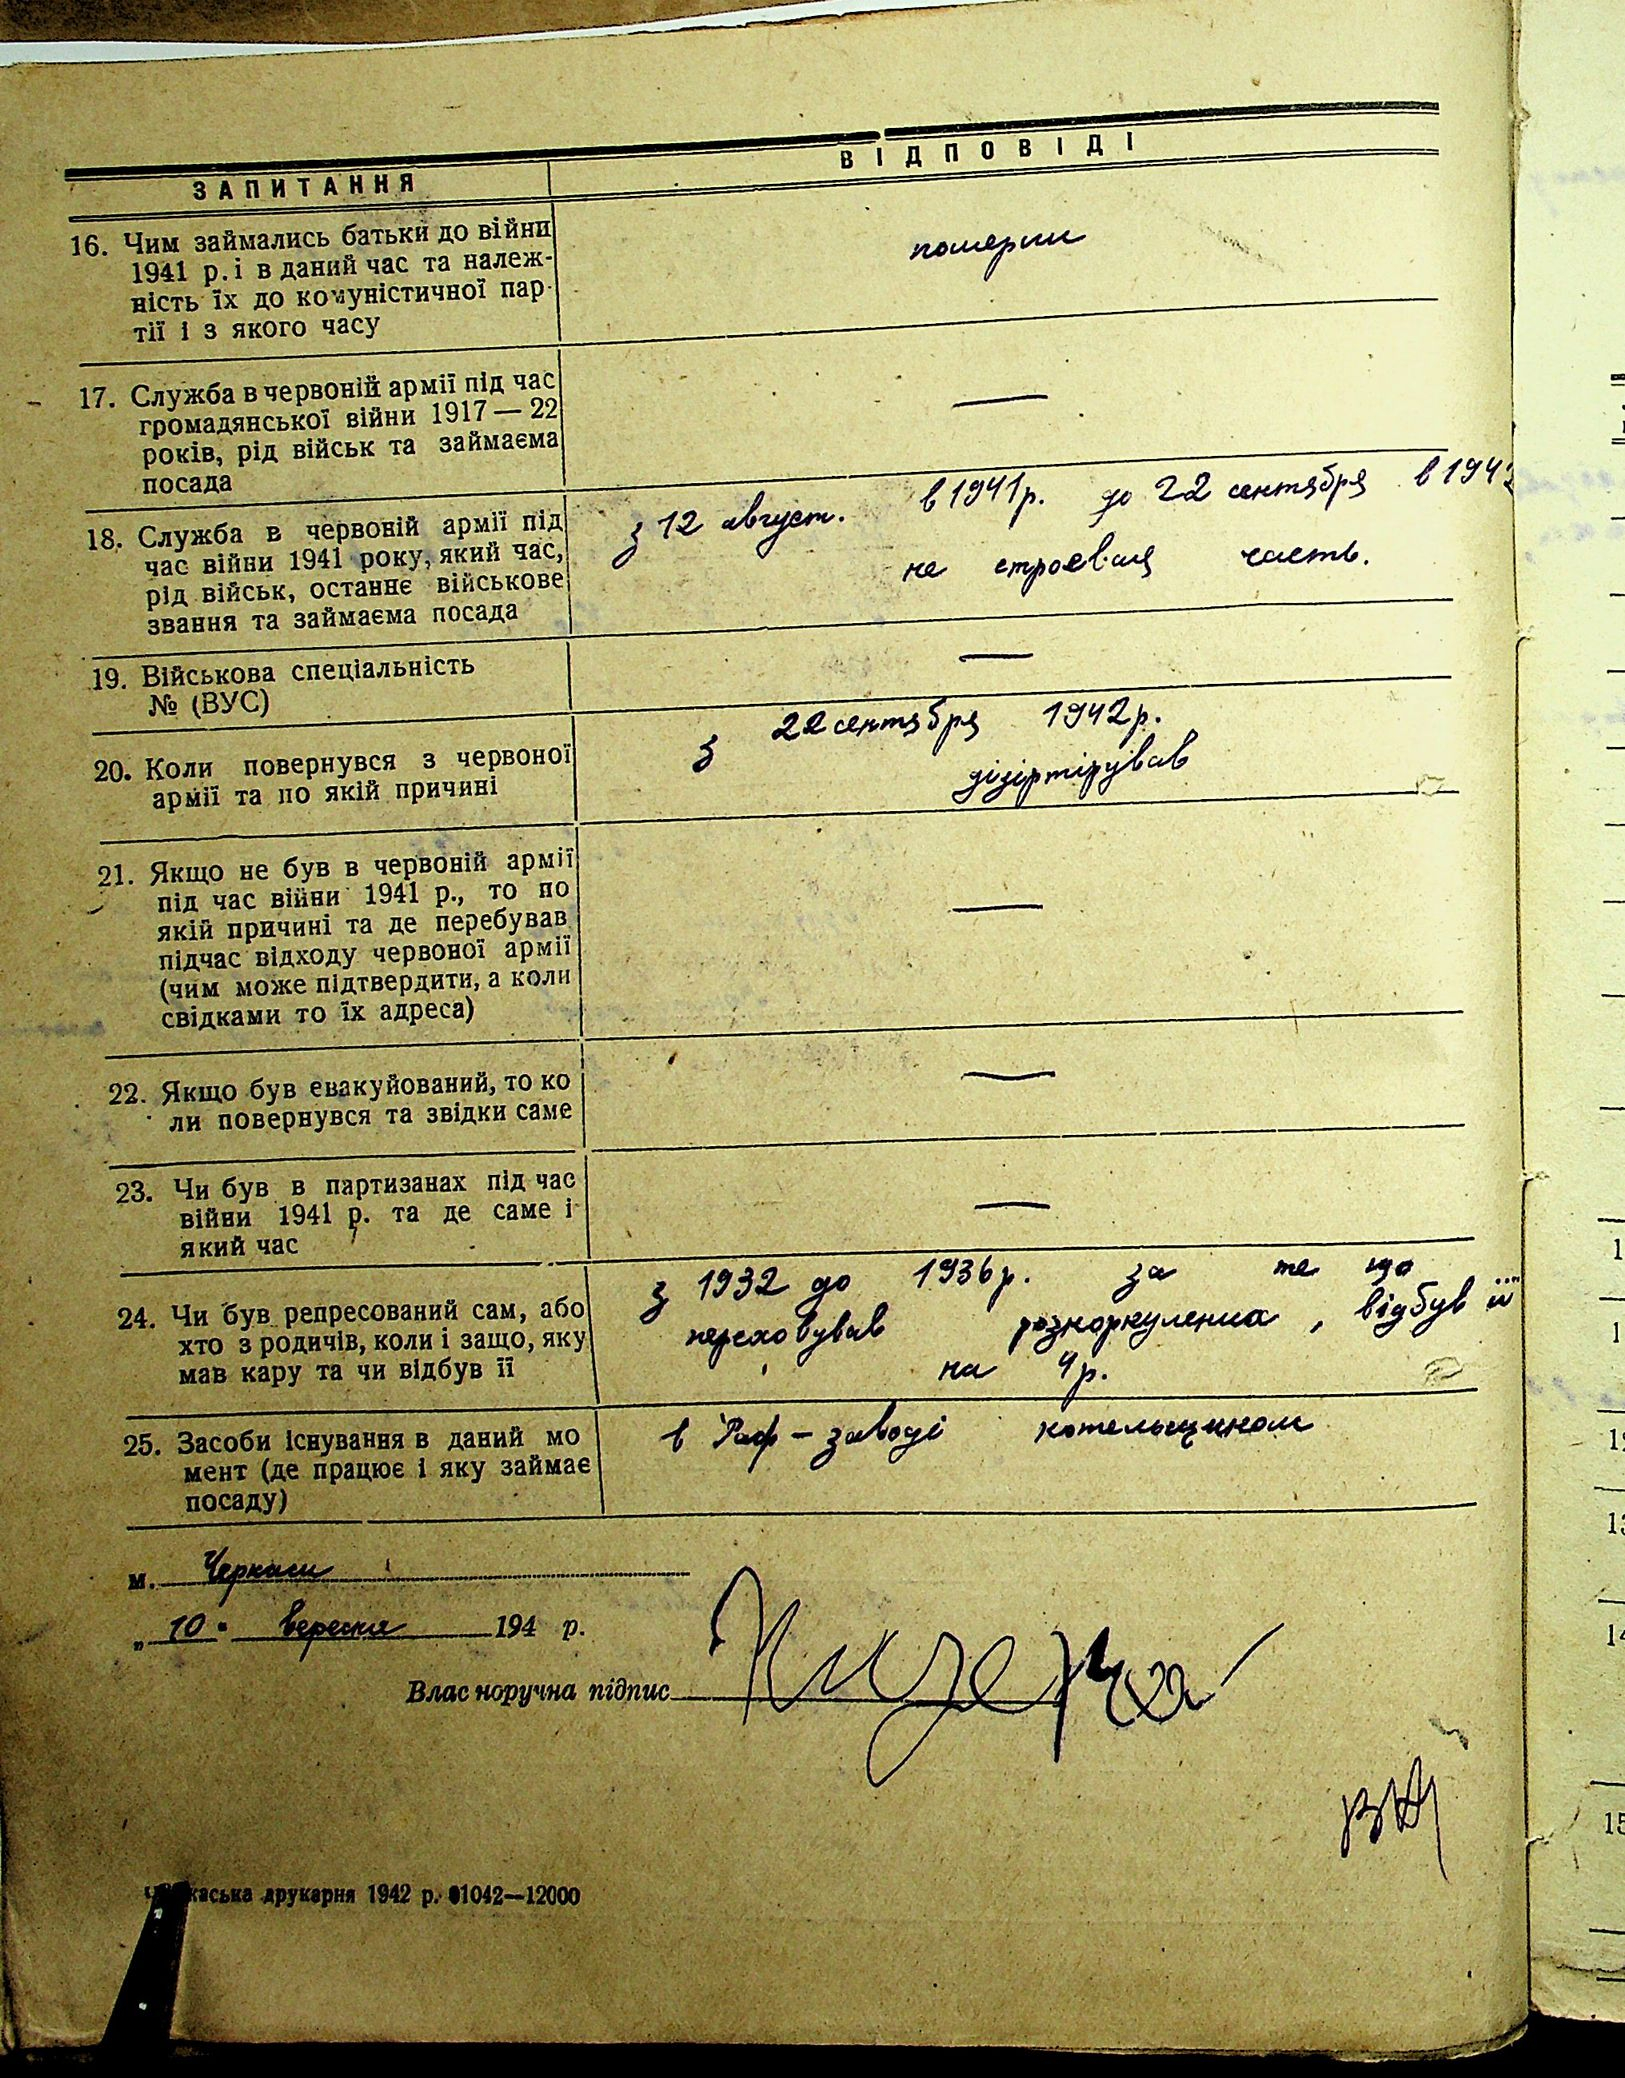 ЗАПИТАННЯ
ВІДПОВІДІ
16. Чим займались батьки до війни
1941 р. і в даний час та належ-
ність їх до комуністичної пар-
тії і з якого часу
померли
17. Служба в червоній армії під час
громадянської війни 1917 — 22
років, рід військ та займаєма
посада
—
18. Служба в червоній армії під
час війни 1941 року, який час,
рід військ, останнє військове
звання та займаєма посада
з 12 август. в 1941 р. до 22 сентября в 194
не строевая часть.
19. Військова спеціальність
№ (ВУС)
—
20. Коли повернувся з червоної
армії та по якій причині
з 22 сентября 1942 р.
дізіртірував
21. Якщо не був в червоній армії
під час війни 1941 р., то по
якій причині та де перебував
підчас відходу червоної армії
(чим може підтвердити, а коли
свідками то їх адреса)
—
22. Якщо був евакуйований, то ко
ли повернувся та звідки саме
—
23. Чи був в партизанах під час
війни 1941 р. та де саме і
який час
—
24. Чи був репресований сам, або
хто з родичів, коли і защо, яку
мав кару та чи відбув її
з 1932 до 1936 р. за те що
переховував відбув її
на 4 р.
25. Засоби існування в даний мо
мент (де працює і яку займає
посаду)
в Раф - заводі котельщиком
м. Черкаси
„ 10 " вересня 194 р.
Власноручна підпис
Черкаська друкарня 1942 р. 01042—12000